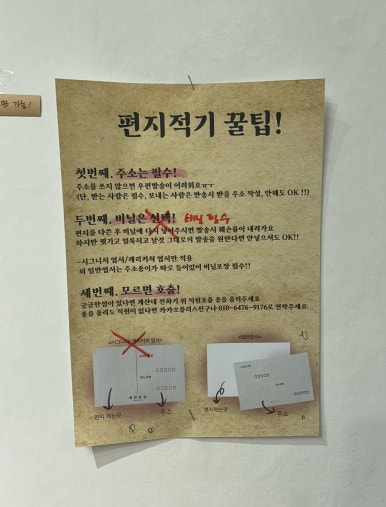 만 가능!
편지적기 꿀팁!
첫번째. 주소는 필수!
주소를 쓰지 않으면 우편발송이 어려워요ㅠㅜ
(단, 받는 사람은 필수, 보내는 사람은 반송시 받을 주소 작성, 안해도 OK !!)
두번째. 비닐은 선택! 비닐 필수
편지를 다쓴 후 비닐에 다시 넣어주시면 발송시 훼손률이 내려가요
하지만 찢기고 얼룩지고 날것 그대로의 발송을 원한다면 안넣으셔도 OK!!
-시그니처 엽서/캐리커처 엽서만 적용
외 일반엽서는 주소용이가 따로 들어있어 비닐포장 필수!!
세번째. 모르면 호출!
궁금한점이 있다면 계산대 전화기 위 직원호출 종을 울려주세요
종을 울려도 직원이 없다면 카카오플러스친구나 010-6476-9176로 연락주세요
<시그니처/캐리커처 엽서>
<일반엽서>
편지 적는곳
주소
편지적는곳
주소